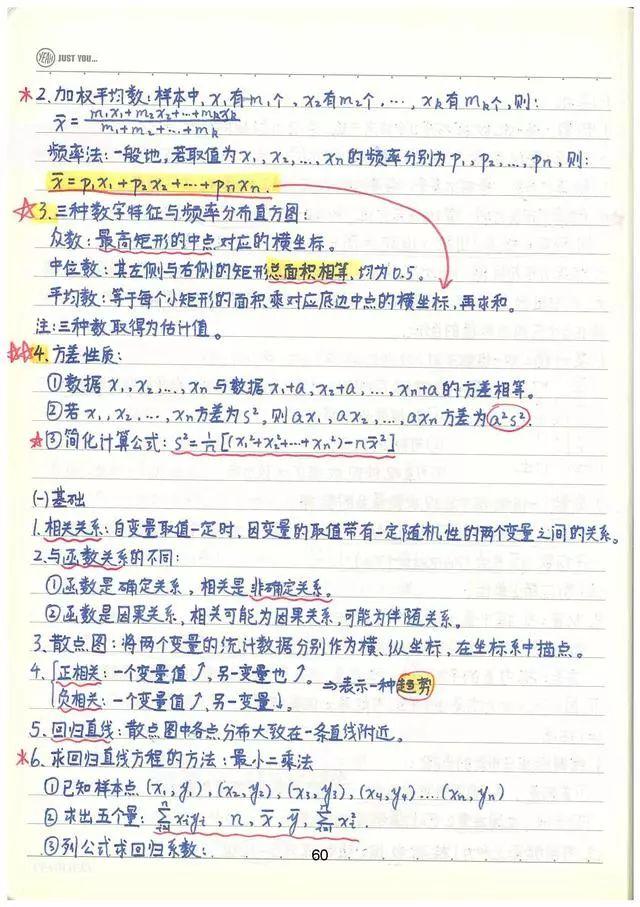 YEAH JUST YOU...
*2.加权平均数:样本中,x₁有m₁个,x₂有m₂个,…,xₖ有mₖ个,则:
x̄=(m₁x₁+m₂x₂+…+mₖxₖ)/(m₁+m₂+…+mₖ)
频率法:一般地,若取值为x₁,x₂,…,xn的频率分别为p₁,p₂,…,pn,则:
x̄=p₁x₁+p₂x₂+…+pnxn.
☆3.三种数字特征与频率分布直方图:
众数:最高矩形的中点对应的横坐标。
中位数:其左侧与右侧的矩形总面积相等,均为0.5。
平均数:等于每个小矩形的面积乘对应底边中点的横坐标,再求和。
注:三种数取得为估计值。
☆☆4.方差性质:
①数据x₁,x₂,…,xn与数据x₁+a,x₂+a,…,xn+a的方差相等。
②若x₁,x₂,…,xn方差为s²,则ax₁,ax₂,…,axn方差为a²s².
☆③简化计算公式:s²=1/n[(x₁²+x₂²+…+xn²)-nx̄²]
(一)基础
1.相关关系:自变量取值一定时,因变量的取值带有一定随机性的两个变量之间的关系。
2.与函数关系的不同:
①函数是确定关系,相关是非确定关系。
②函数是因果关系,相关可能为因果关系,可能为伴随关系。
3.散点图:将两个变量的统计数据分别作为横、纵坐标,在坐标系中描点。
4.{正相关:一个变量值↗,另一变量也↗。 ⇒表示一种趋势
负相关:一个变量值↗,另一变量↓。
5.回归直线:散点图中各点分布大致在一条直线附近。
*6.求回归直线方程的方法:最小二乘法
①已知样本点(x₁,y₁),(x₂,y₂),(x₃,y₃),(x₄,y₄)….(xn,yn)
②求出五个量:∑ⁿᵢ₌₁xᵢyᵢ,n,x̄,ȳ,∑ⁿᵢ₌₁xᵢ².
③列公式求回归系数:
60